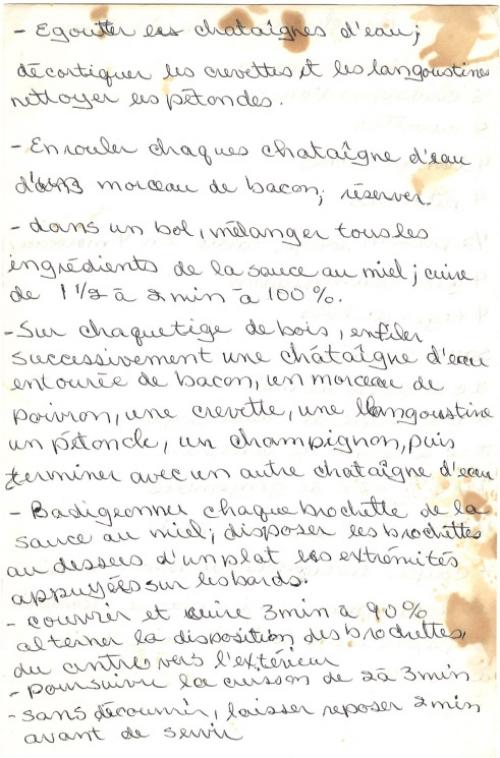 - Egoutter les chataîgnes d'eau;
décortiquer les crevettes et les langoustines
nettoyer les pétondes.
- Enrouler chaques chataîgne d'eau
d'un morceau de bacon; réserver.
- dans un bol, mélanger tous les
ingrédients de la sauce au miel; cuire
de 1 1/2 à 2 min à 100%.
- Sur chaque tige de bois, enfiler
successivement une chátaîgne d'eau
entourée de bacon, un morceau de
poivron, une crevette, une langoustine
un pétoncle, un champignon, puis
terminer avec un autre chataîgne d'eau
- Badigeonner chaque brochette de la
sauce au miel; disposer les brochettes
au dessus d'un plat les extrémités
appuyées sur les bords.
- couvrir et cuire 3 min à 90%
alterner la disposition des brochettes,
du centre vers l'extérieur
- poursuivre la cuisson de 2 à 3 min
- sans découvrir, laisser reposer 2 min
avant de servir